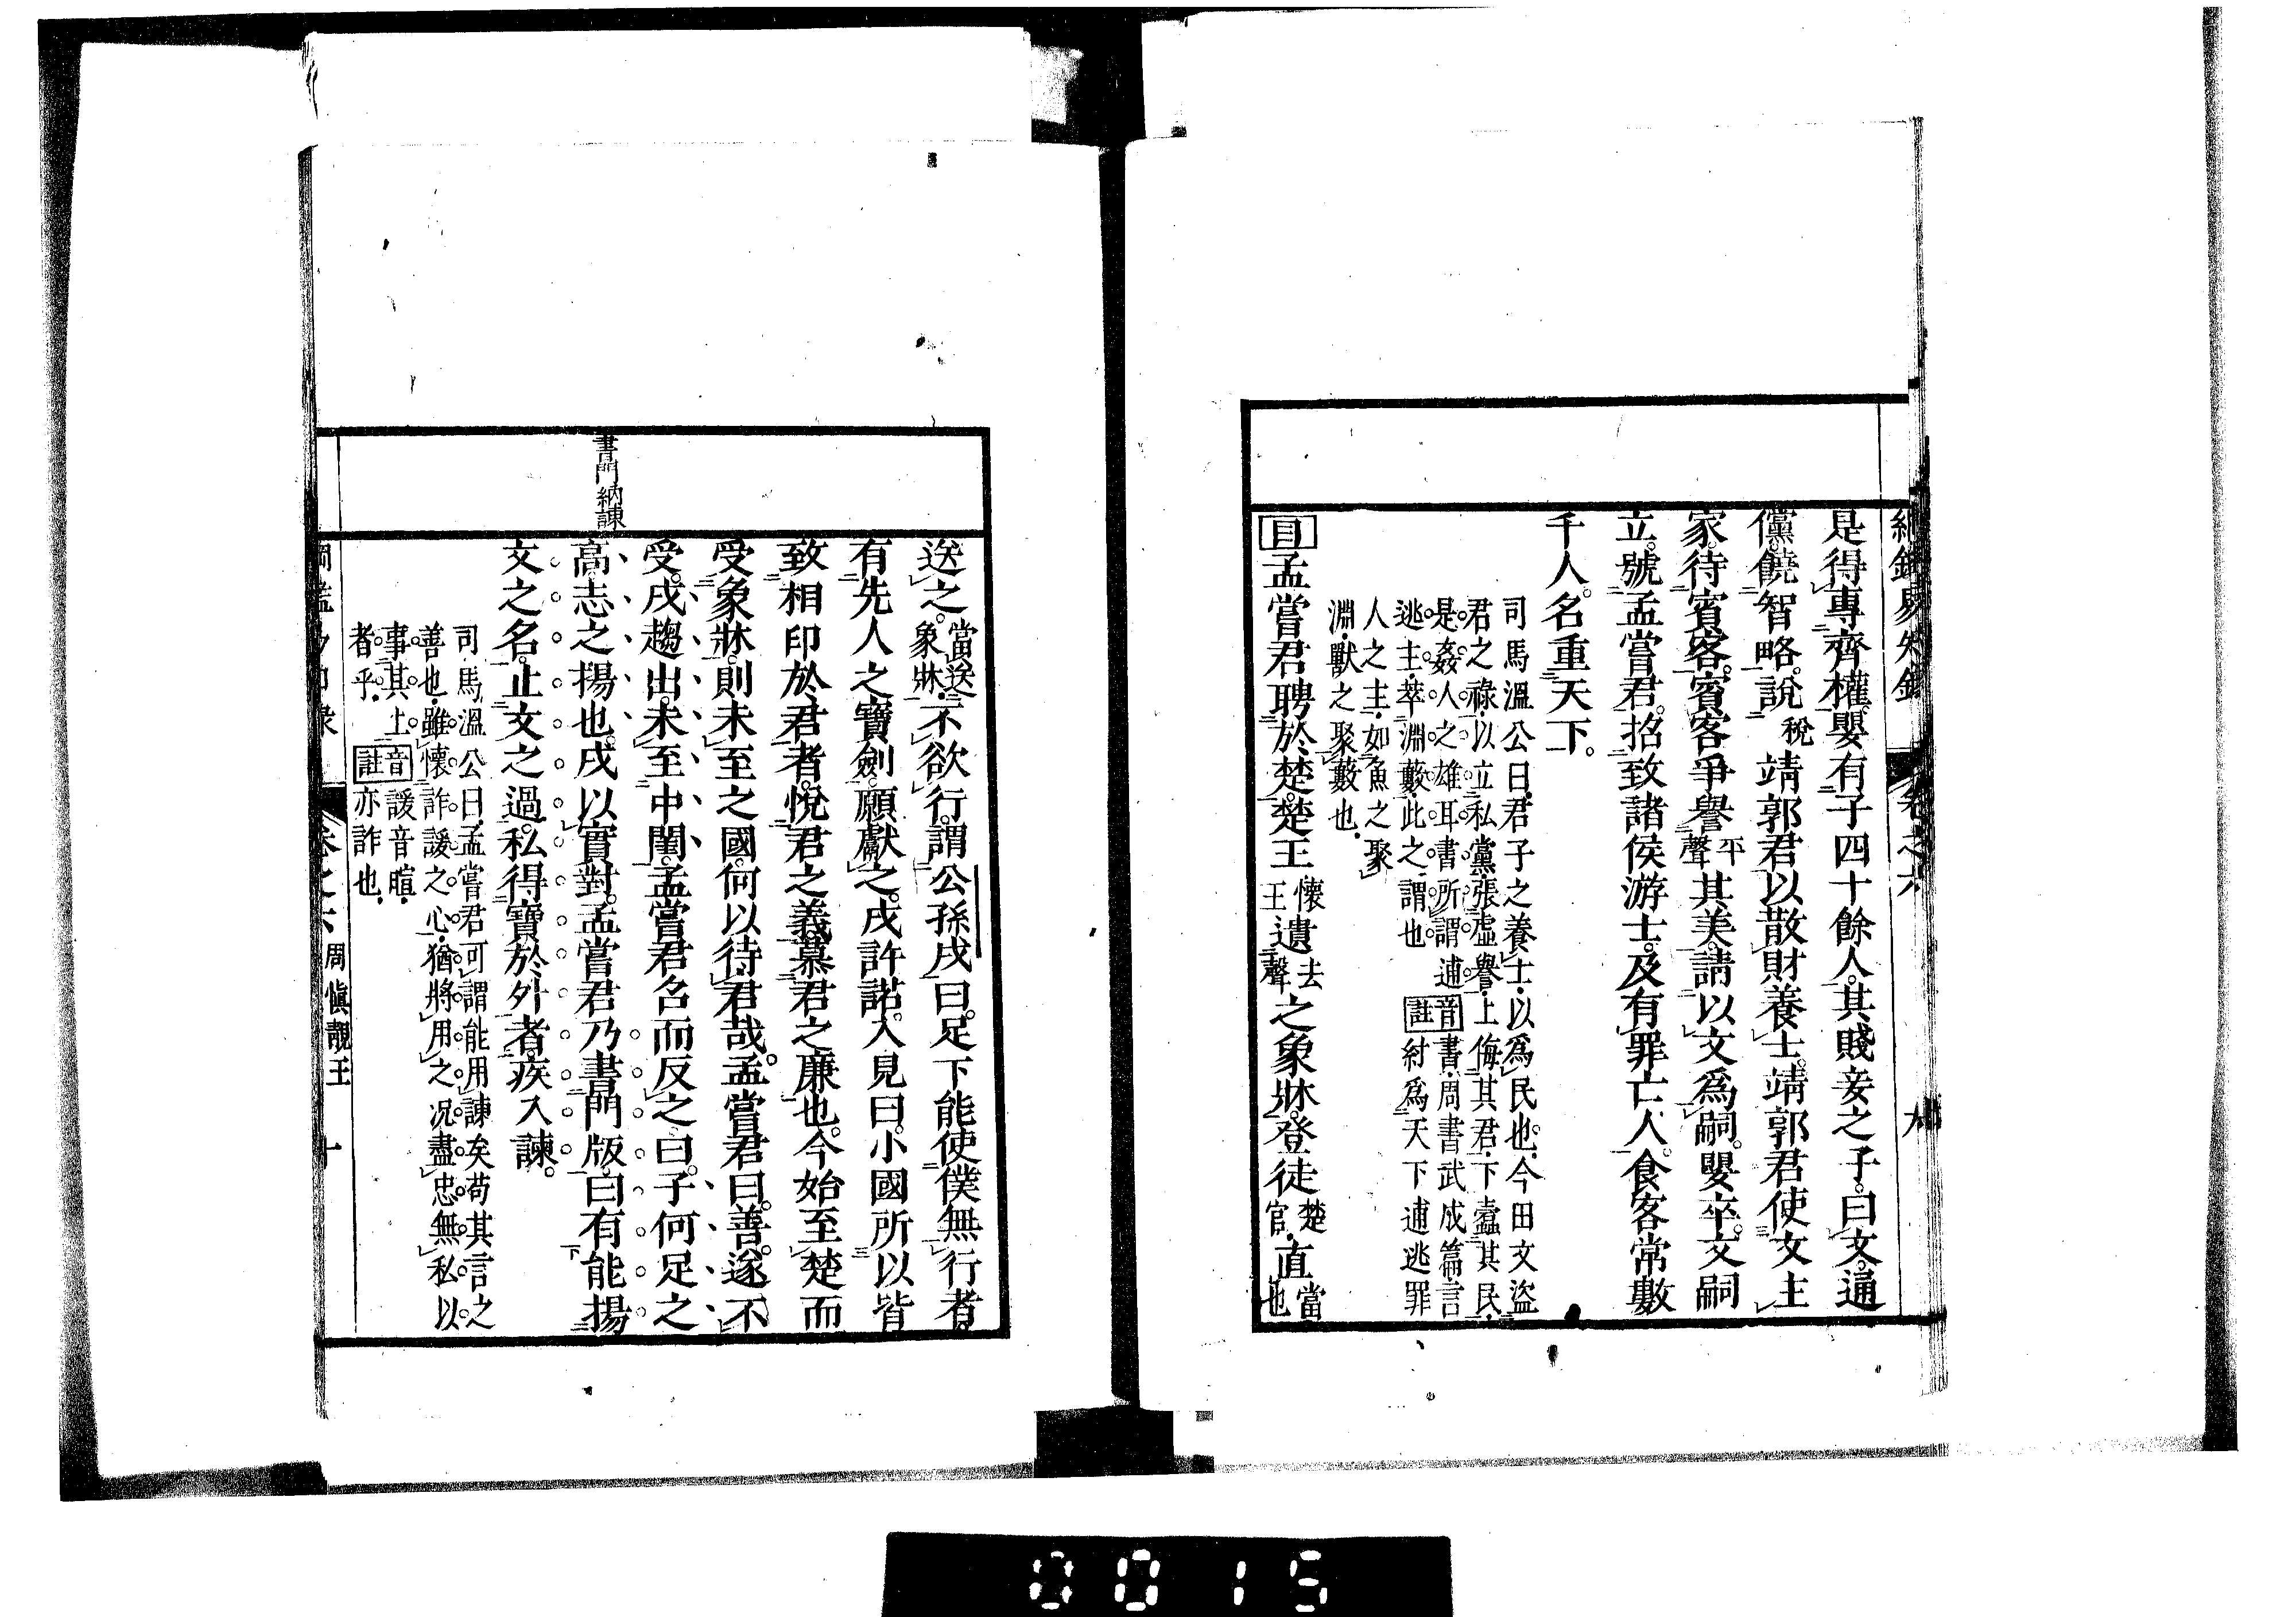 綱鑑易知錄 卷之六 九
是得專齊權嬰有子四十餘人其賤妾之子曰文通
儻饒智略說稅靖郭君以散財養士靖郭君使文主
家待賓客賓客爭譽平聲其美請以文爲嗣嬰卒文嗣
立號孟嘗君招致諸侯游士及有罪亡人食客常數
千人名重天下
司馬溫公曰君子之養士以爲民也今田文盜
君之祿以立私黨張虛譽上侮其君下蠹其民
是姦人之雄耳書所謂逋音註書周書武成篇言
逃主萃淵藪此之謂也紂爲天下逋逃罪
人之主如魚之聚
淵獸之聚藪也
目孟嘗君聘於楚楚王懷王遺去聲之象牀登徒楚官直當也
書門納諫
送之當送象牀不欲行謂公孫戌曰足下能使僕無行者
有先人之寶劍願獻之戌許諾入見曰小國所以皆
致相印於君者悅君之義慕君之廉也今始至楚而
受象牀則未至之國何以待君哉孟嘗君曰善遂不
受戌趨出未至中閨孟嘗君召而反之曰子何足之
高志之揚也戌以實對孟嘗君乃書門版曰有能揚
文之名止文之過私得寶於外者疾入諫
司馬溫公曰孟嘗君可謂能用諫矣苟其言之
善也雖懷詐諼之心猶將用之况盡忠無私以
事其上音諼音暄
者乎註亦詐也
綱鑑易知錄 卷之六 周愼靚王 十
0015